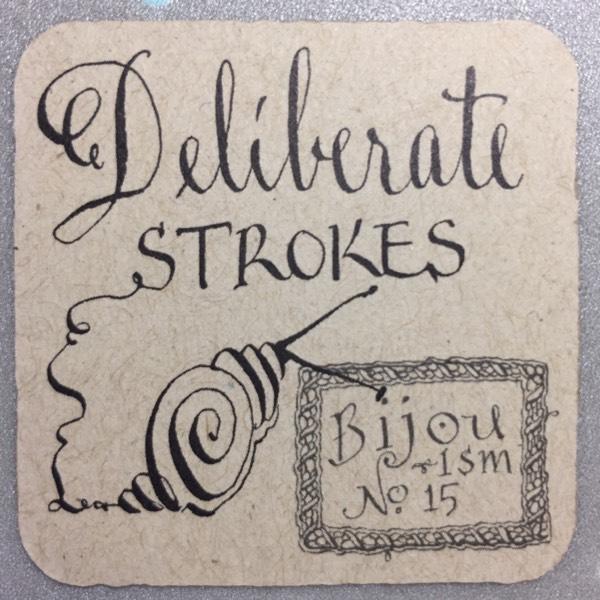 Deliberate
STROKES
Bijou
+ISM
No 15